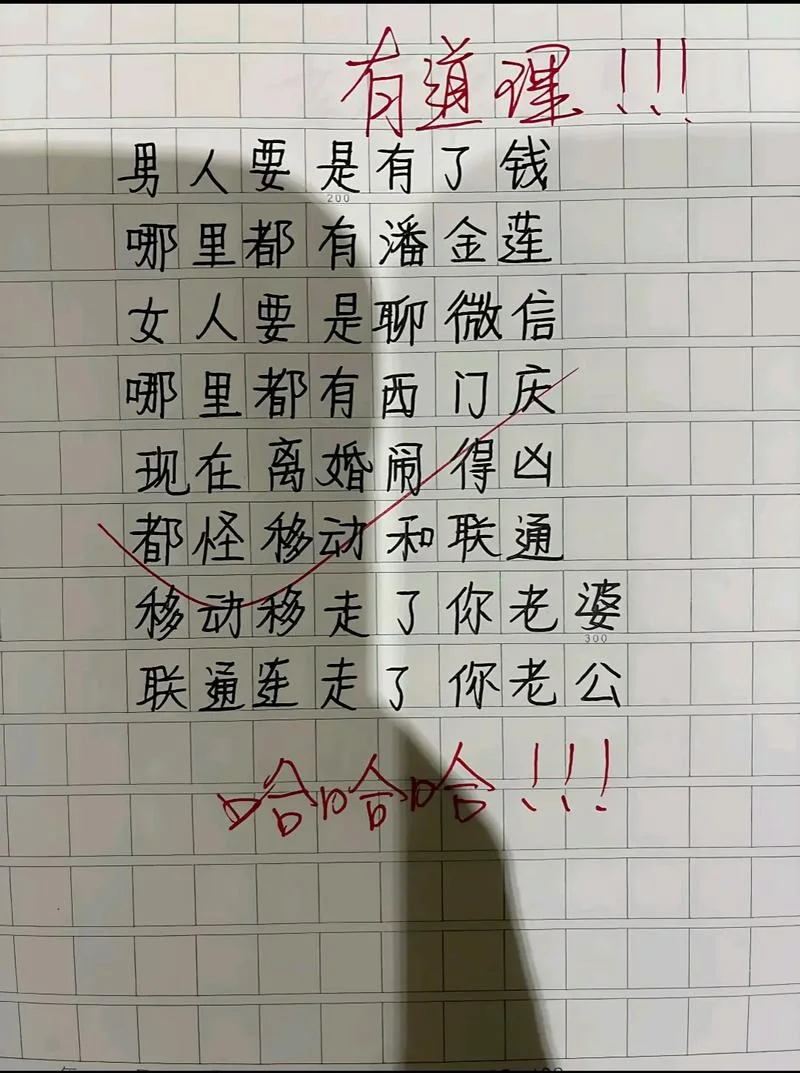 有道理!!!
男人要是有了钱
200
哪里都有潘金莲
女人要是聊微信
哪里都有西门庆
现在离婚闹得凶
都怪移动和联通
移动移走了你老婆
300
联通连走了你老公
哈哈哈!!!